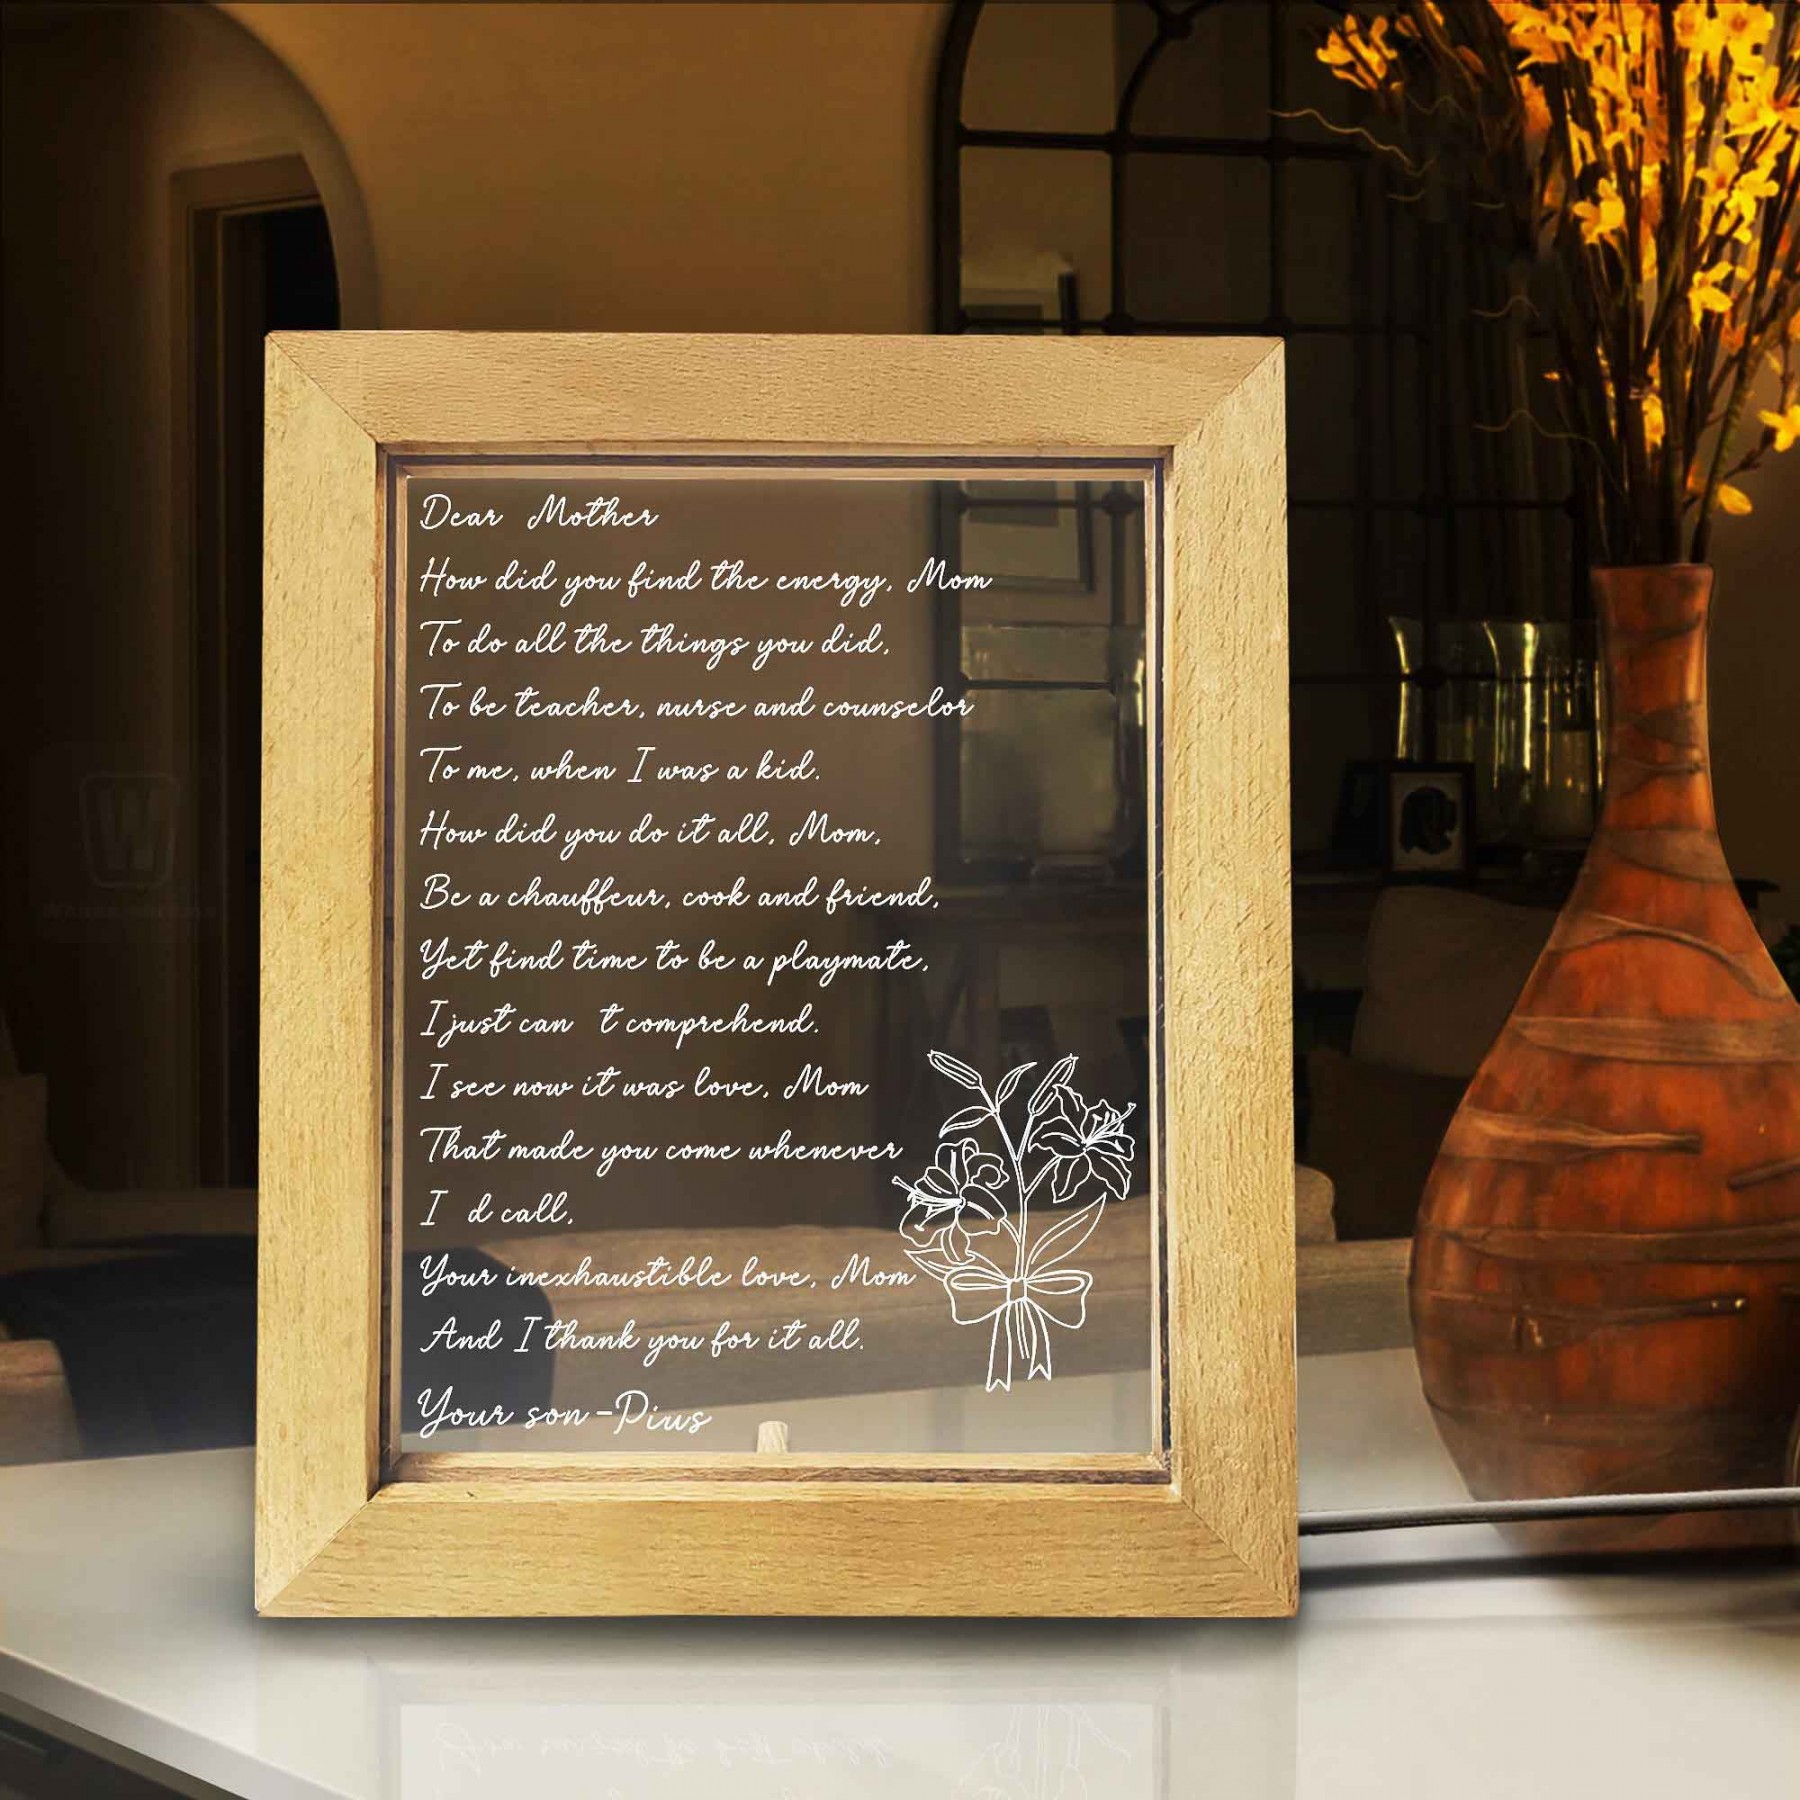 Dear Mother
How did you find the energy, Mom
To do all the things you did,
To be teacher, nurse and counselor
To me, when I was a kid.
How did you do it all, Mom,
Be a chauffeur, cook and friend,
Yet find time to be a playmate,
I just can t comprehend.
I see now it was love, Mom
That made you come whenever
I d call,
Your inexhaustible love, Mom
And I thank you for it all.
Your son-Pius
W